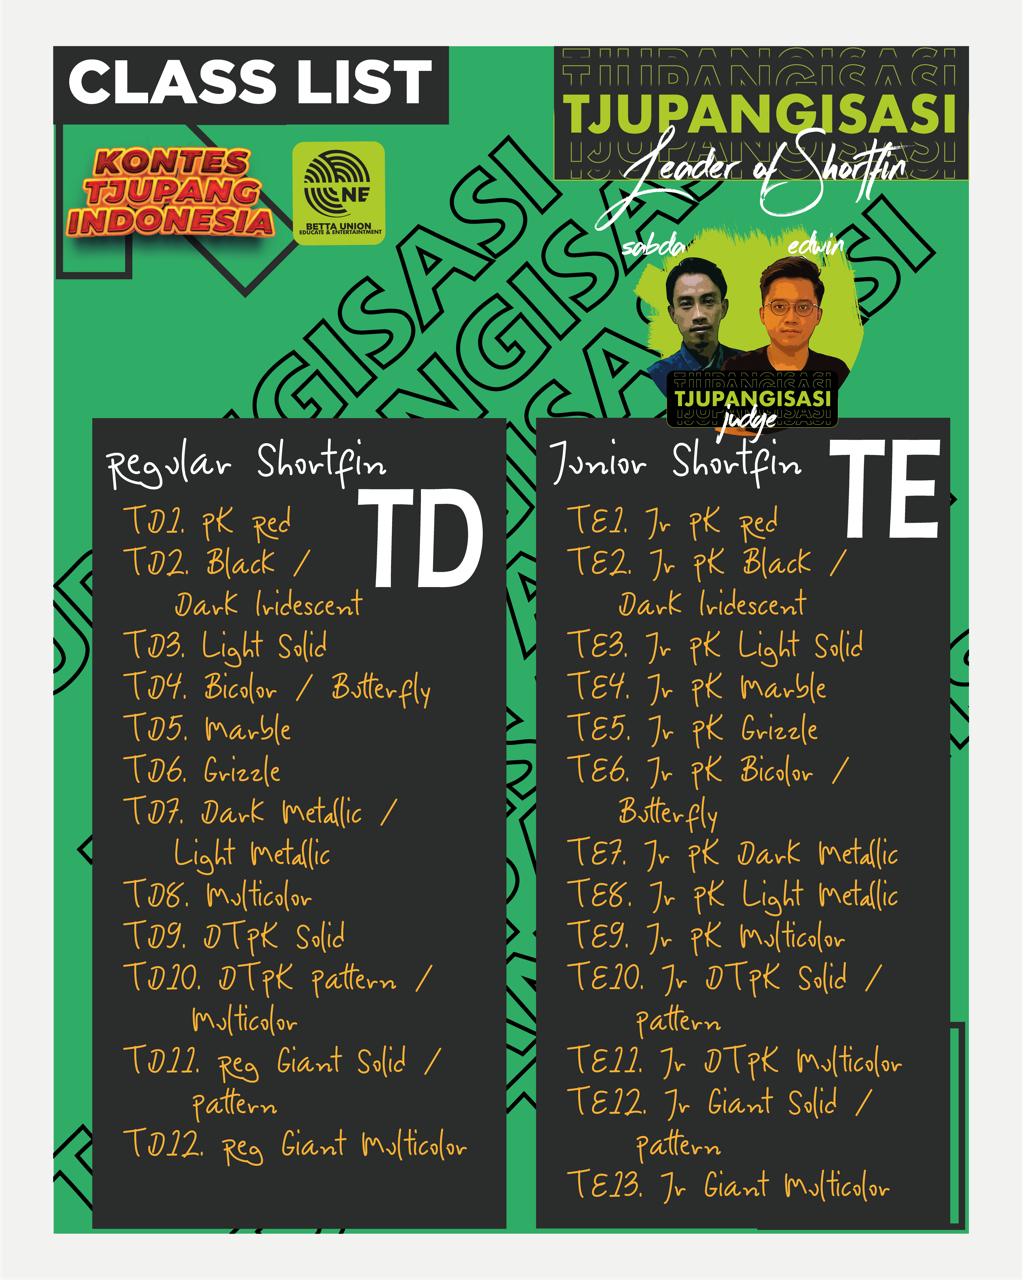 CLASS LIST
KONTES
TJUPANG
INDONESIA
UNE
BETTA UNION
EDUCATE & ENTERTAINTMENT
TJUPANGISASI
TJUPANGISASI
TJUPANGISASI
Leader of Shortfin
sabda
edwin
TJUPANGISASI
judge
Regular Shortfin
TD
TD1. PK Red
TD2. Black /
Dark Iridescent
TD3. Light Solid
TD4. Bicolor / Butterfly
TD5. Marble
TD6. Grizzle
TD7. Dark Metallic /
Light Metallic
TD8. Multicolor
TD9. DTPK Solid
TD10. DTPK Pattern /
Multicolor
TD11. Reg Giant Solid /
Pattern
TD12. Reg Giant Multicolor
Junior Shortfin
TE
TE1. Jr PK Red
TE2. Jr PK Black /
Dark Iridescent
TE3. Jr PK Light Solid
TE4. Jr PK Marble
TE5. Jr PK Grizzle
TE6. Jr PK Bicolor /
Butterfly
TE7. Jr PK Dark Metallic
TE8. Jr PK Light Metallic
TE9. Jr PK Multicolor
TE10. Jr DTPK Solid /
Pattern
TE11. Jr DTPK Multicolor
TE12. Jr Giant Solid /
Pattern
TE13. Jr Giant Multicolor